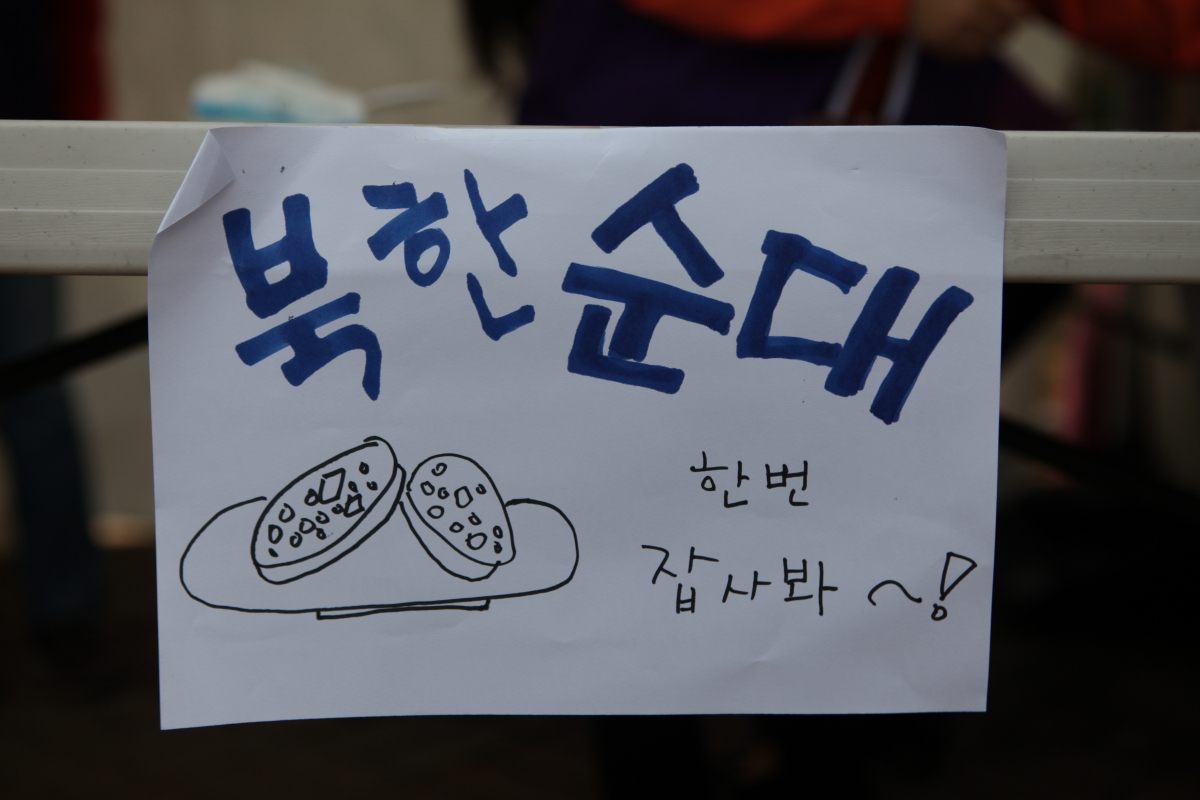 북한순대
한번
잡사봐~!